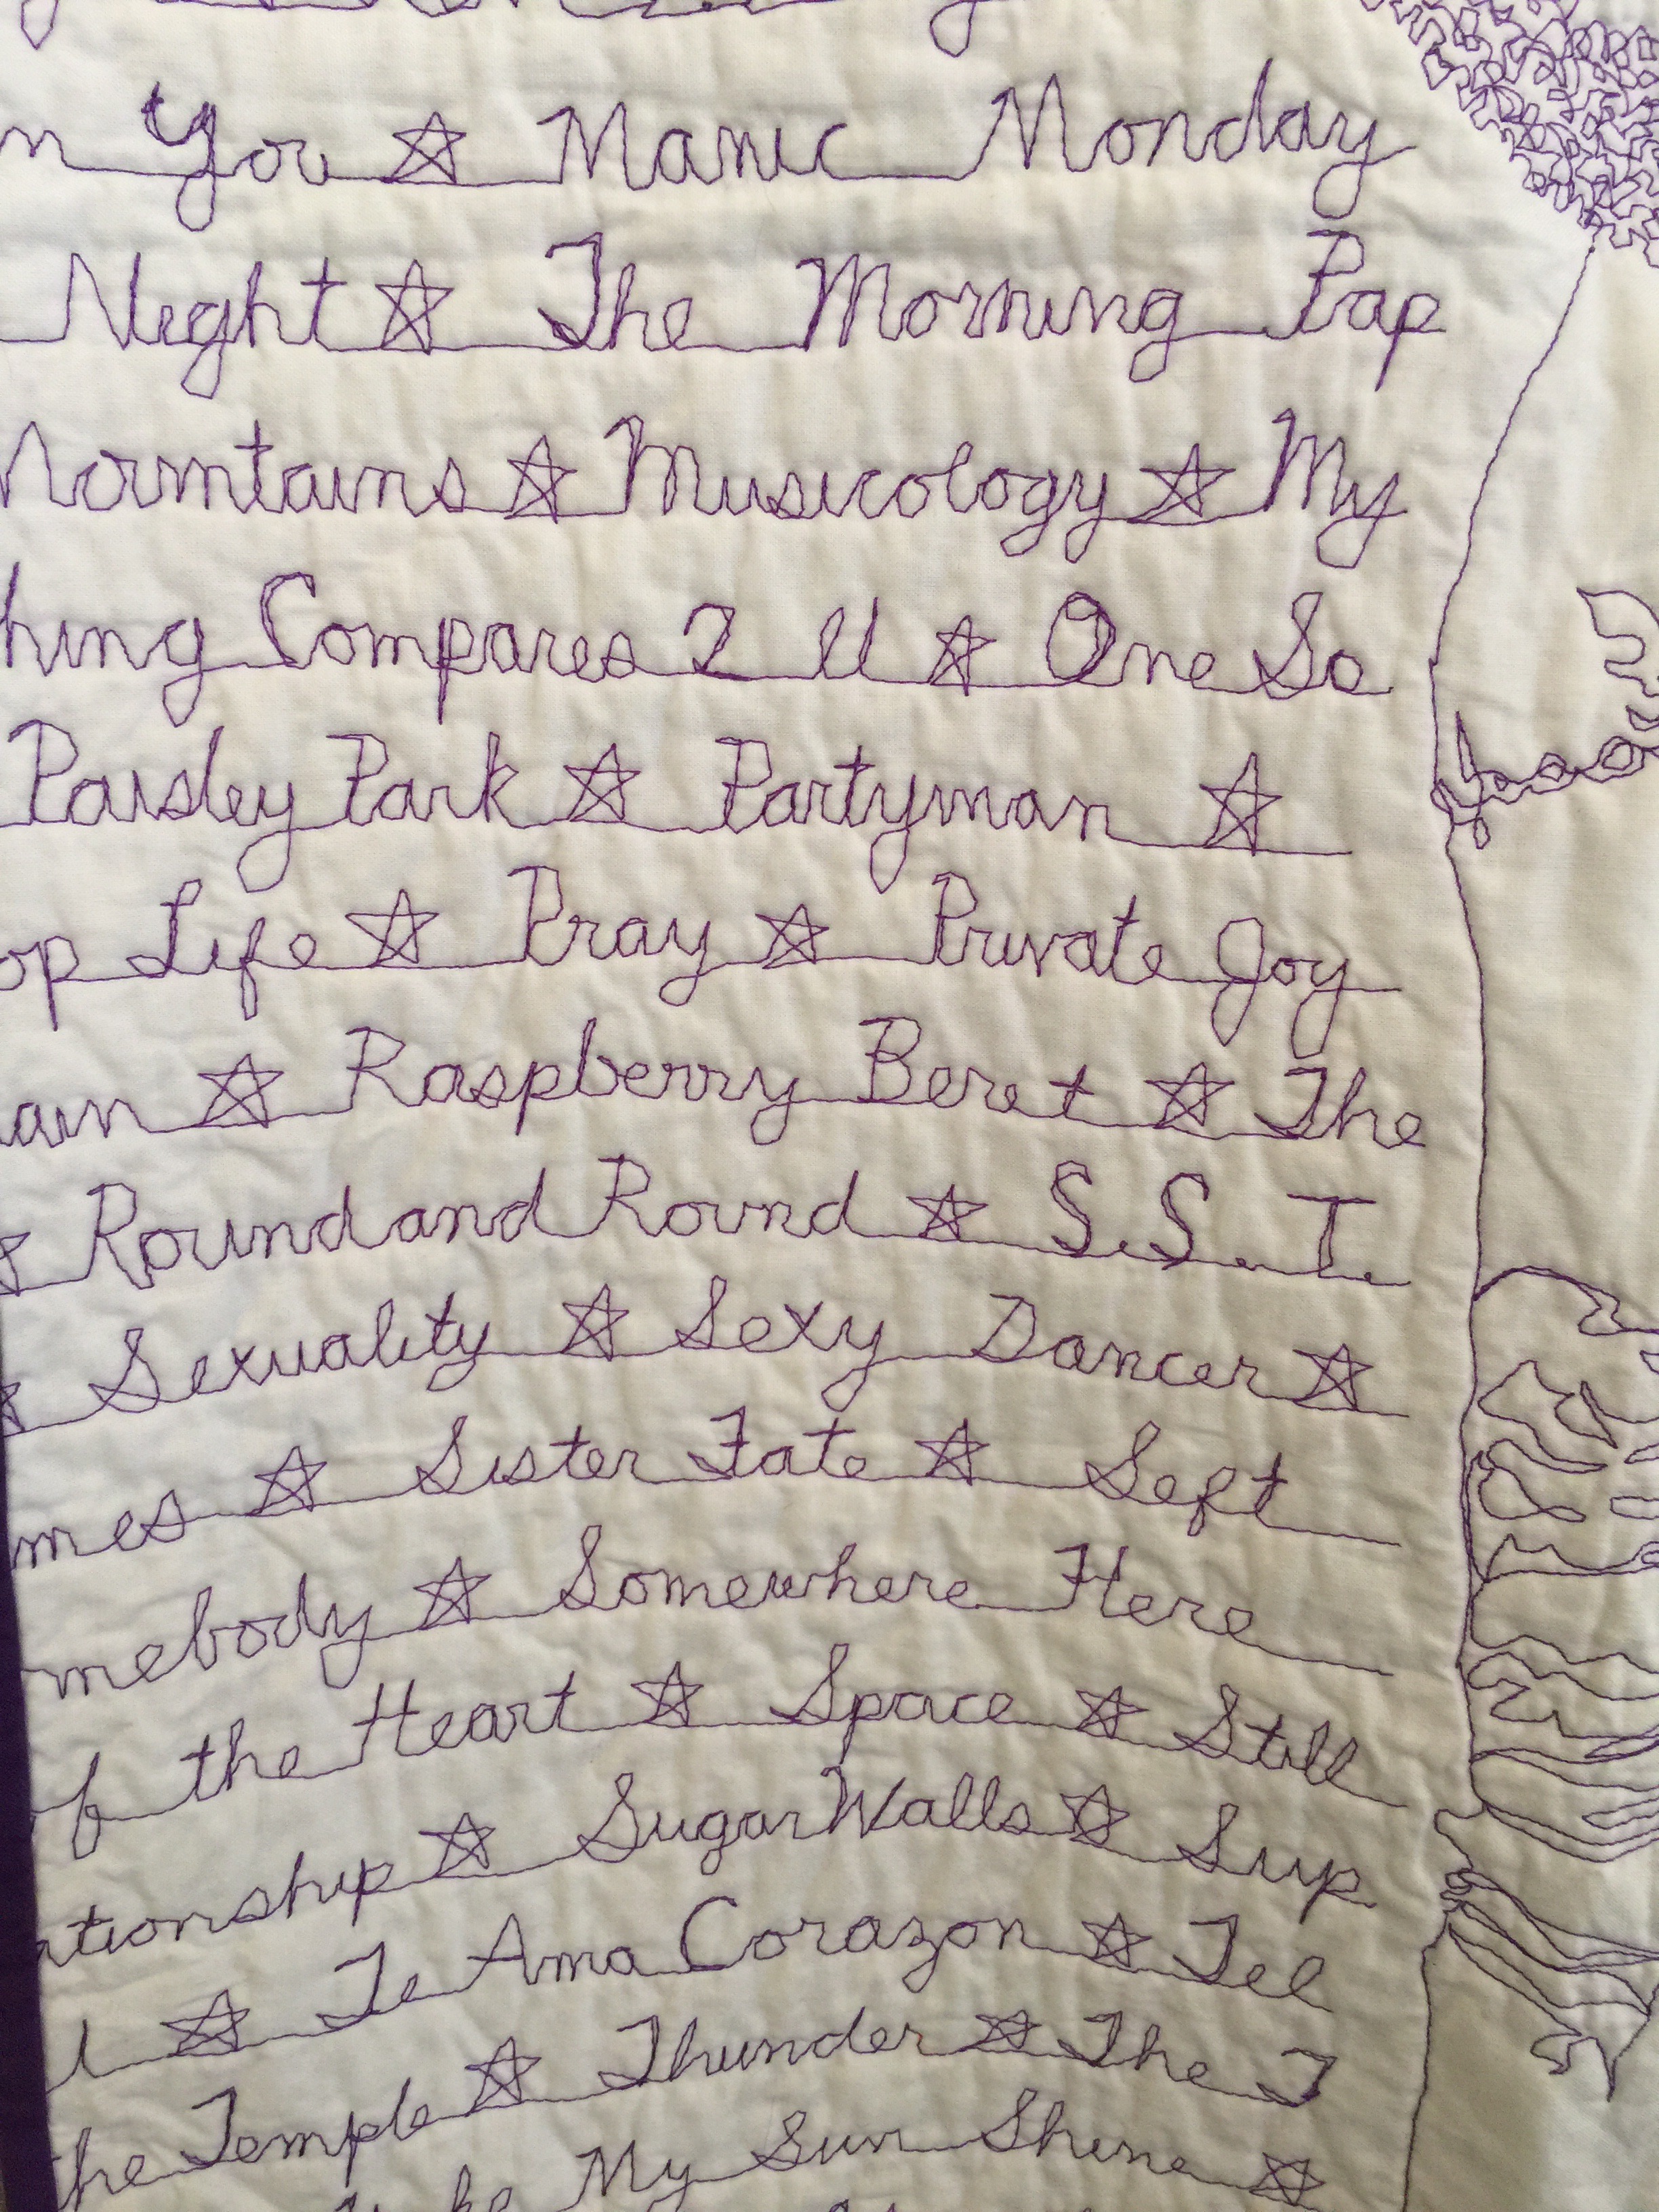 n You ☆ Manic Monday
Night ☆ The Morning Pap
Mountains ☆ Musicology ☆ My
hing Compares 2 U ☆ One So
Paisley Park ☆ Partyman ☆
op Life ☆ Pray ☆ Private Joy
ain ☆ Raspberry Beret ☆ The
☆ Round and Round ☆ S.S.T.
☆ Sexuality ☆ Sexy Dancer ☆
mes ☆ Sister Fate ☆ Soft
mebody ☆ Somewhere Here
of the Heart ☆ Space ☆ Still
ationship ☆ Sugar Walls ☆ Sup
l ☆ Te Amo Corazon ☆ Tel
the Temple ☆ Thunder ☆ The T
My Sun Shine ☆